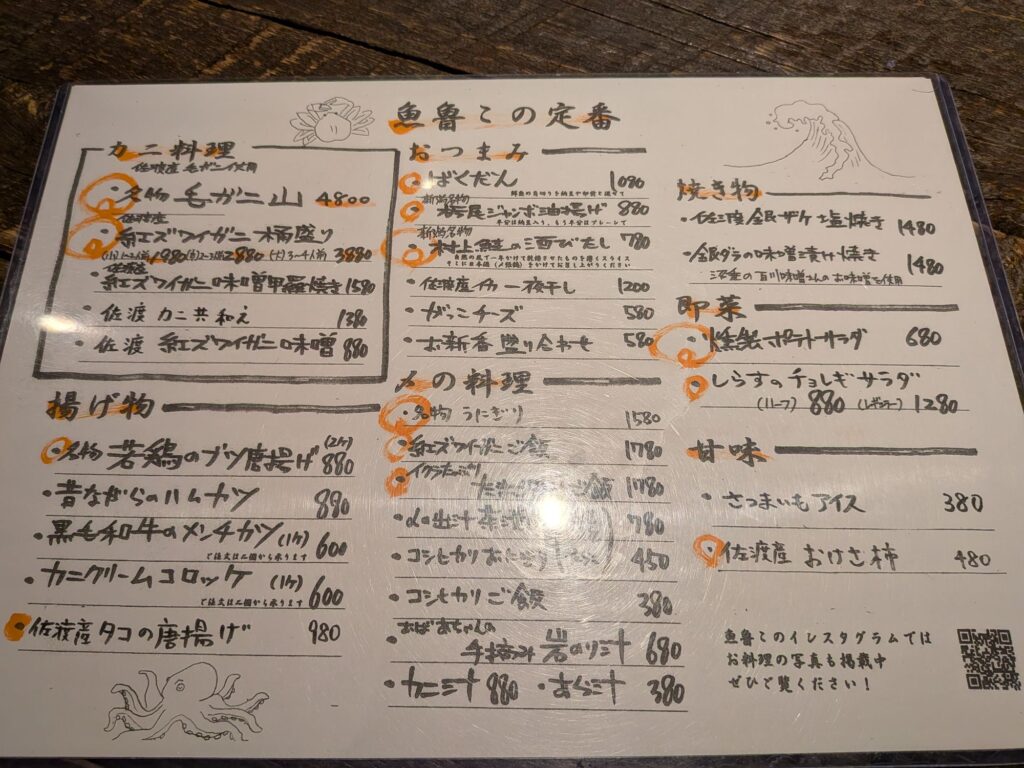 魚魯この定番
カニ料理
佐渡産 毛ガニ使用
・名物 毛ガニ山 4800
佐渡産
・紅エズワイガニ 桶盛り
(小)1~2人前 1980 (中)2~3人前 2880 (大)3~4人前 3880
佐渡産
・紅ズワイガニ味噌甲羅焼き 1580
・佐渡 カニ共和え 1380
・佐渡 紅ズワイガニ味噌 880
揚げ物
・名物 若鶏のブツ唐揚げ (2ケ) 880
・昔ながらのハムカツ 880
・黒毛和牛のメンチカツ (1ケ) 600
ご注文は二個から承ります
・カニクリームコロッケ (1ケ) 600
ご注文は二個から承ります
・佐渡産タコの唐揚げ 980
おつまみ
・ばくだん 1080
新潟名物
・栃尾ジャンボ油揚げ 880
半分は納豆入り、もう半分はプレーンで
新潟名物
・村上鮭の酒びたし 780
自然の風で一年かけて乾燥させたものを薄くスライス
そこに日本酒(〆張鶴)をかけてお召し上がりください
・佐渡産イカ一夜干し 1200
・がっこチーズ 580
・お新香盛り合わせ 580
〆の料理
・名物 うにぎり 1580
・紅ズワイガニご飯 1780
・イクラたっぷり
ご飯 1780
780
・コシヒカリ 450
・コシヒカリご飯 380
・おばあちゃんの
手摘み岩のり汁 680
・カニ汁 880 ・あら汁 380
焼き物
・佐渡銀ザケ塩焼き 1480
・銀ダラの味噌漬け焼き 1480
お味噌を使用
即菜
・燻製ポテトサラダ 680
・しらすのチョレギサラダ
(ハーフ) 880 (レギュラー) 1280
甘味
・さつまいもアイス 380
・佐渡産 おけさ柿 480
魚魯このインスタグラムでは
お料理の写真も掲載中
ぜひご覧ください!